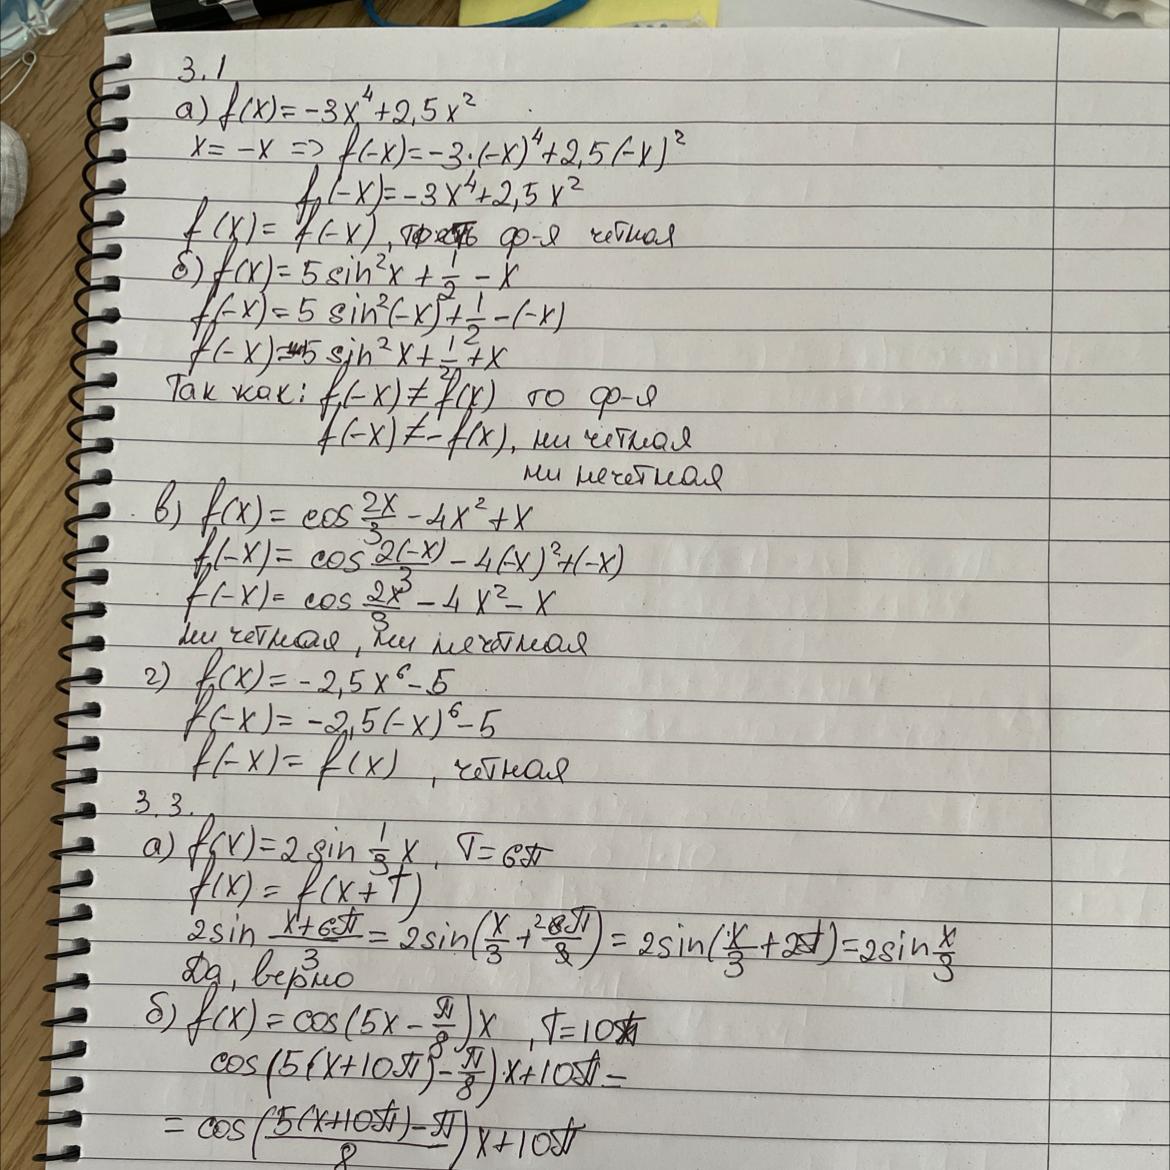 3.1
а) f(x)=-3x⁴+2,5x²
x=-x => f(-x)=-3·(-x)⁴+2,5(-x)²
f(-x)=-3x⁴+2,5x²
f(x)=f(-x), ф-я четная
б) f(x)=5sin²x+1/2-x
f(-x)=5sin²(-x)+1/2-(-x)
f(-x)=5sin²x+1/2+x
Так как: f(-x)≠f(x) то ф-я
f(-x)≠-f(x), ни четная
ни нечетная
в) f(x)=cos 2x/3-4x²+x
f(-x)=cos 2(-x)/3-4(-x)²+(-x)
f(-x)=cos 2x/3-4x²-x
ни четная, ни нечетная
г) f(x)=-2,5x⁶-5
f(-x)=-2,5(-x)⁶-5
f(-x)=f(x), четная
3.3.
а) f(x)=2sin 1/3 x, T=6π
f(x)=f(x+T)
2sin (x+6π)/3=2sin(x/3+²6π/3)=2sin(x/3+2π)=2sin x/3
Да, верно
б) f(x)=cos(5x-π/8)x, T=10π
cos(5(x+10π)-π/8)·x+10π=
=cos((5(x+10π)-π)/8)x+10π